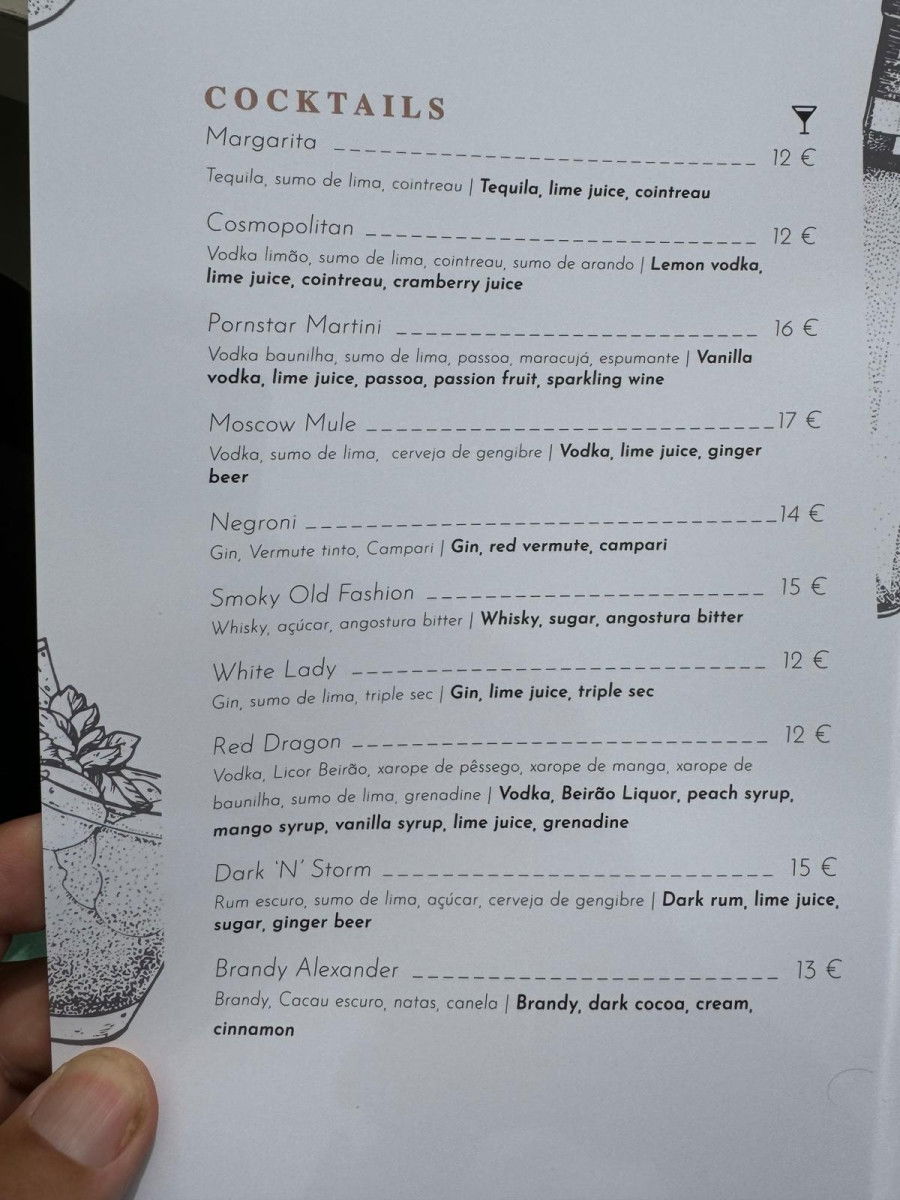 COCKTAILS
Margarita 12 €
Tequila, sumo de lima, cointreau | Tequila, lime juice, cointreau
Cosmopolitan 12 €
Vodka limão, sumo de lima, cointreau, sumo de arando | Lemon vodka,
lime juice, cointreau, cramberry juice
Pornstar Martini 16 €
Vodka baunilha, sumo de lima, passoa, maracujá, espumante | Vanilla
vodka, lime juice, passoa, passion fruit, sparkling wine
Moscow Mule 17 €
Vodka, sumo de lima, cerveja de gengibre | Vodka, lime juice, ginger
beer
Negroni 14 €
Gin, Vermute tinto, Campari | Gin, red vermute, campari
Smoky Old Fashion 15 €
Whisky, açúcar, angostura bitter | Whisky, sugar, angostura bitter
White Lady 12 €
Gin, sumo de lima, triple sec | Gin, lime juice, triple sec
Red Dragon 12 €
Vodka, Licor Beirão, xarope de pêssego, xarope de manga, xarope de
baunilha, sumo de lima, grenadine | Vodka, Beirão Liquor, peach syrup,
mango syrup, vanilla syrup, lime juice, grenadine
Dark 'N' Storm 15 €
Rum escuro, sumo de lima, açúcar, cerveja de gengibre | Dark rum, lime juice,
sugar, ginger beer
Brandy Alexander 13 €
Brandy, Cacau escuro, natas, canela | Brandy, dark cocoa, cream,
cinnamon